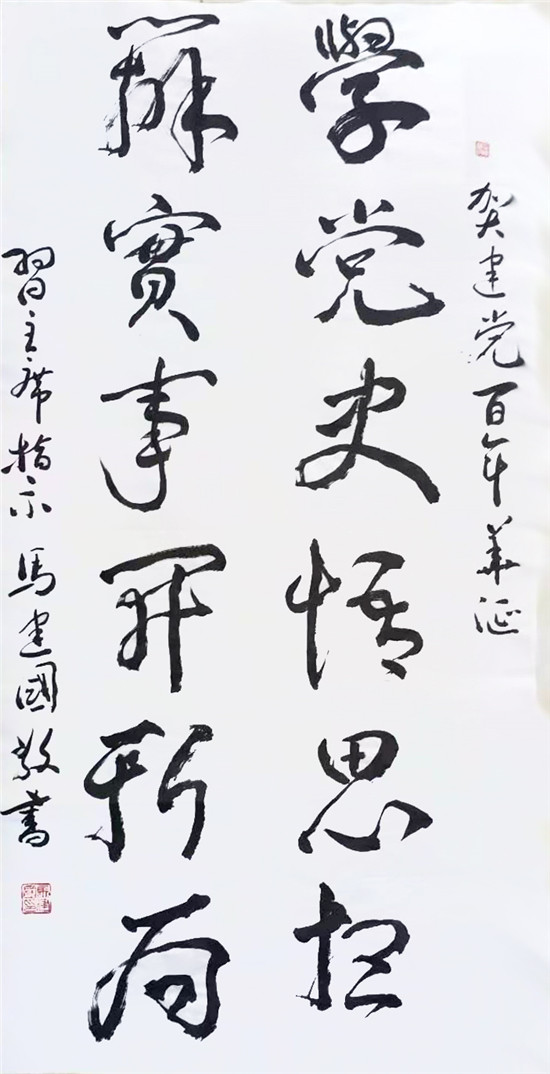 贺建党百年華诞
學党史悟思想
辦實事開新局
習主席指示 馬建國敬書